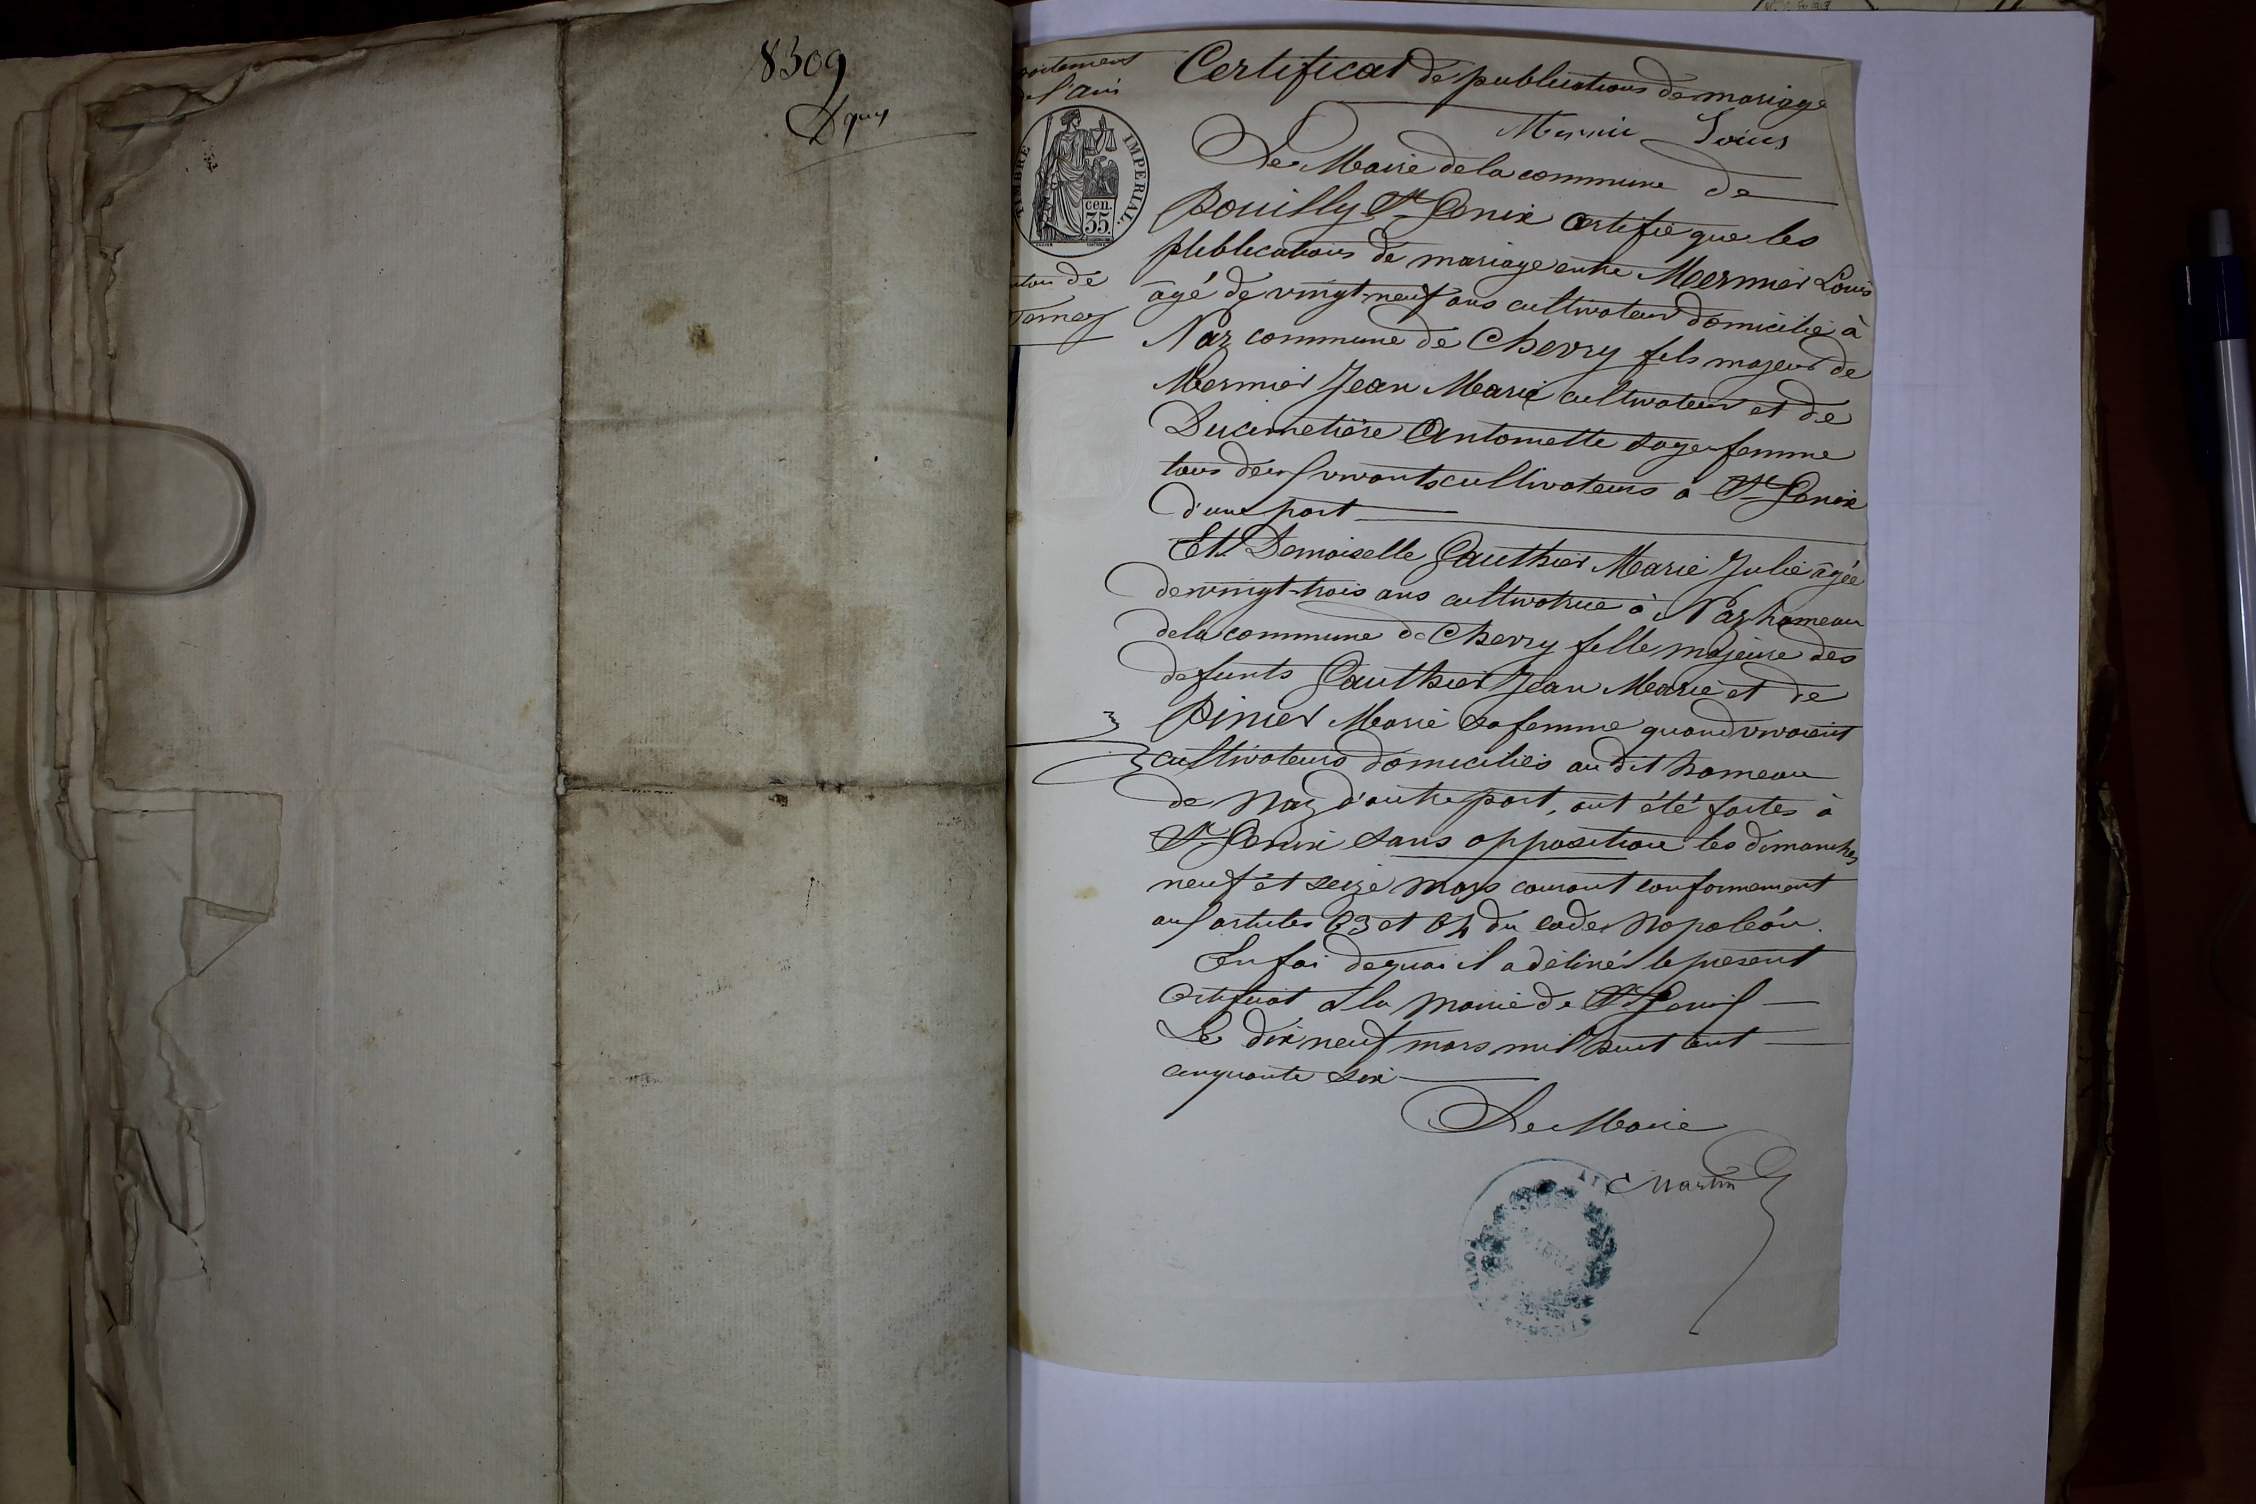 8309
Certificat de publications de mariage
Mermier Louis
partement
de l'Ain
TIMBRE IMPERIAL.
35 cen.
nton de
Ferney
Le Maire de la commune de
Pouilly St Genix certifie que les
publications de mariage entre Mermier Louis
âgé de vingt-neuf ans cultivateur domicilié à
Naz commune de Chevry fils majeur de
Mermier Jean Marie cultivateur et de
Ducimetière Antoinette sage-femme
tous deux vivants cultivateurs à St Genix
d'une part
Et Demoiselle Gauthier Marie Julie âgée
de vingt-trois ans cultivatrice à Naz hameau
de la commune de Chevry fille majeure des
defunts Gauthier Jean Marie et de
Pinier Marie sa femme quand vivaient
cultivateurs domiciliés au dit hameau
de Naz d'autre part, ont été faites à
St Genix sans opposition les dimanches
neuf et seize mars courant conformement
aux articles 63 et 64 du code Napoléon.
En foi de quoi il a délivré le present
certificat à la Mairie de St Genix
Le dix neuf mars mil huit cent
cinquante six
Le Maire
Martin